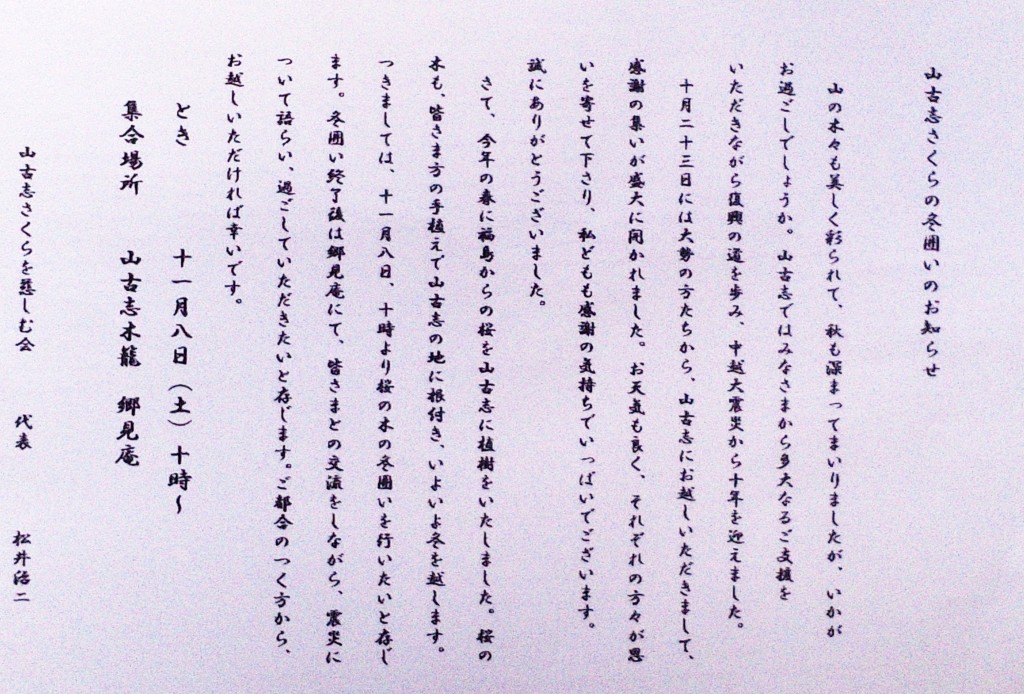 山古志さくらの冬囲いのお知らせ
山の木々も美しく彩られて、秋も深まってまいりましたが、いかが
お過ごしでしょうか。山古志ではみなさまから多大なるご支援を
いただきながら復興の道を歩み、中越大震災から十年を迎えました。
十月二十三日には大勢の方たちから、山古志にお越しいただきまして、
感謝の集いが盛大に開かれました。お天気も良く、それぞれの方々が思
いを寄せて下さり、私どもも感謝の気持ちでいっぱいでございます。
誠にありがとうございました。
さて、今年の春に福島からの桜を山古志に植樹をいたしました。桜の
木も、皆さま方の手植えで山古志の地に根付き、いよいよ冬を越します。
つきましては、十一月八日、十時より桜の木の冬囲いを行いたいと存じ
ます。冬囲い終了後は郷見庵にて、皆さまとの交流をしながら、震災に
ついて語らい、過ごしていただきたいと存じます。ご都合のつく方から、
お越しいただければ幸いです。
とき 十一月八日（土）十時～
集合場所 山古志木籠 郷見庵
山古志さくらを慈しむ会 代表 松井治二